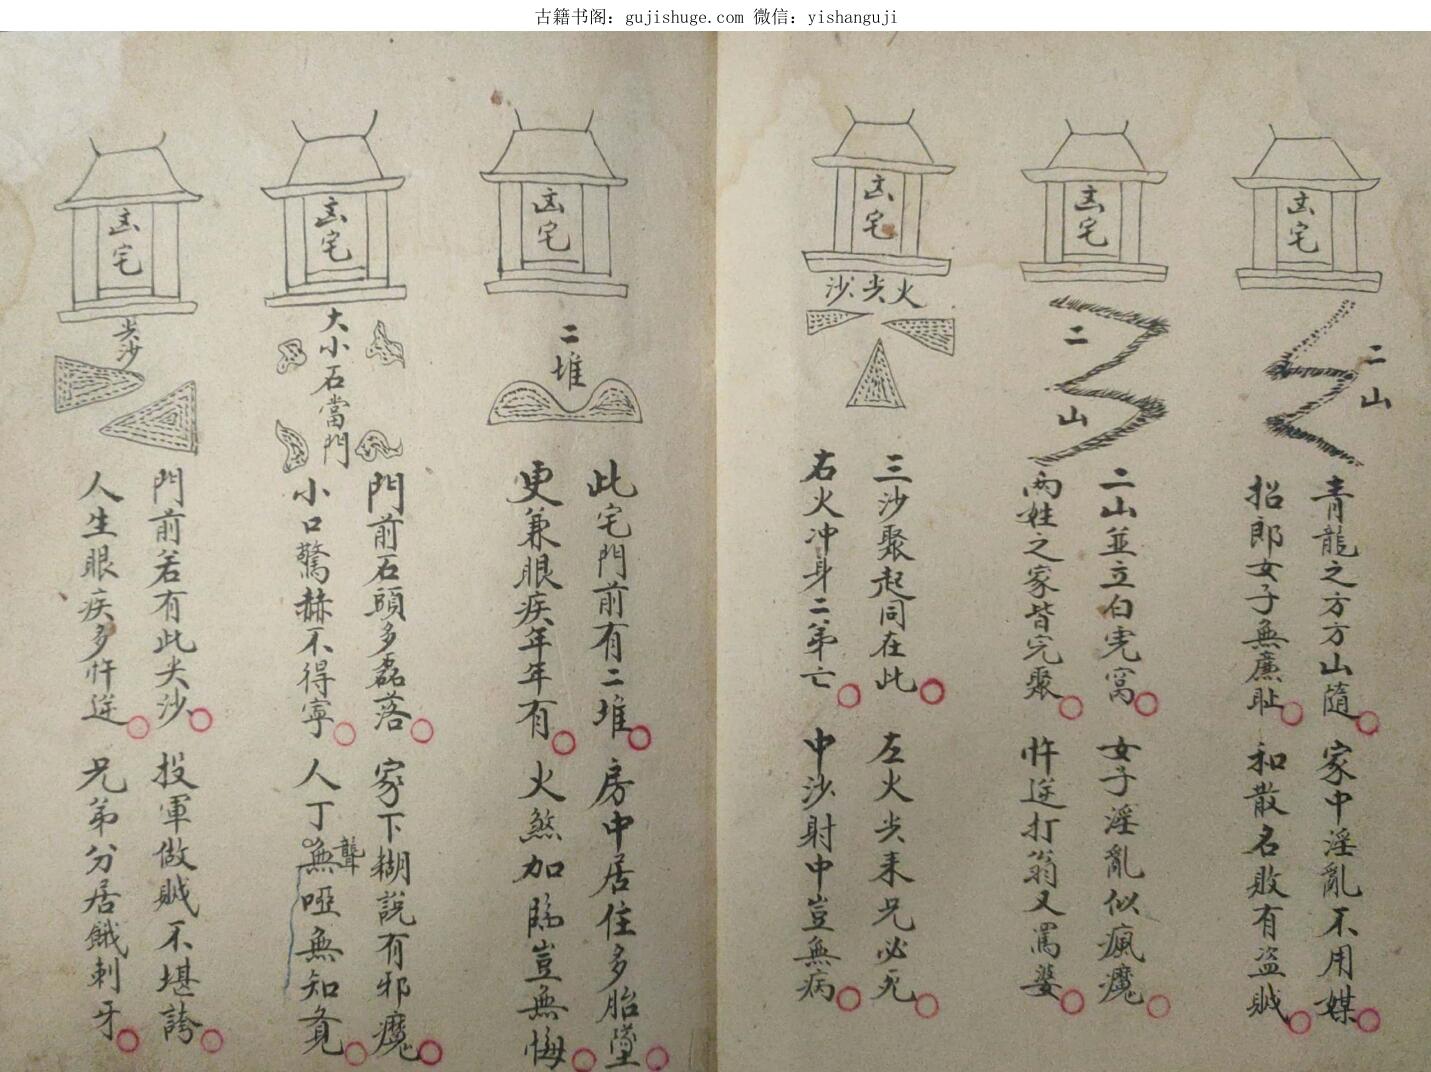 古籍书阁：gujishuge.com 微信：yishanguji
凶宅
二山
青龍之方方山隨
家中淫亂不用媒
招郎女子無廉耻
和散名敗有盜賊
凶宅
二山
二山並立白虎窩
女子淫亂似瘋魔
兩姓之家皆完聚
忤逆打翁又罵婆
凶宅
火尖沙
三沙聚起同在此
左火尖来兄必死
右火冲身二弟亡
中沙射中豈無病
凶宅
二堆
此宅門前有二堆
房中居住多胎墜
更兼眼疾年年有
火煞加臨豈無悔
凶宅
大小石當門
門前石頭多磊落
家下糊說有邪魔
小口驚赫不得寧
人丁無啞無知覓
聾
凶宅
尖沙
門前若有此尖沙
投軍做賊不堪誇
人生眼疾多忤逆
兄弟分居餓刺牙